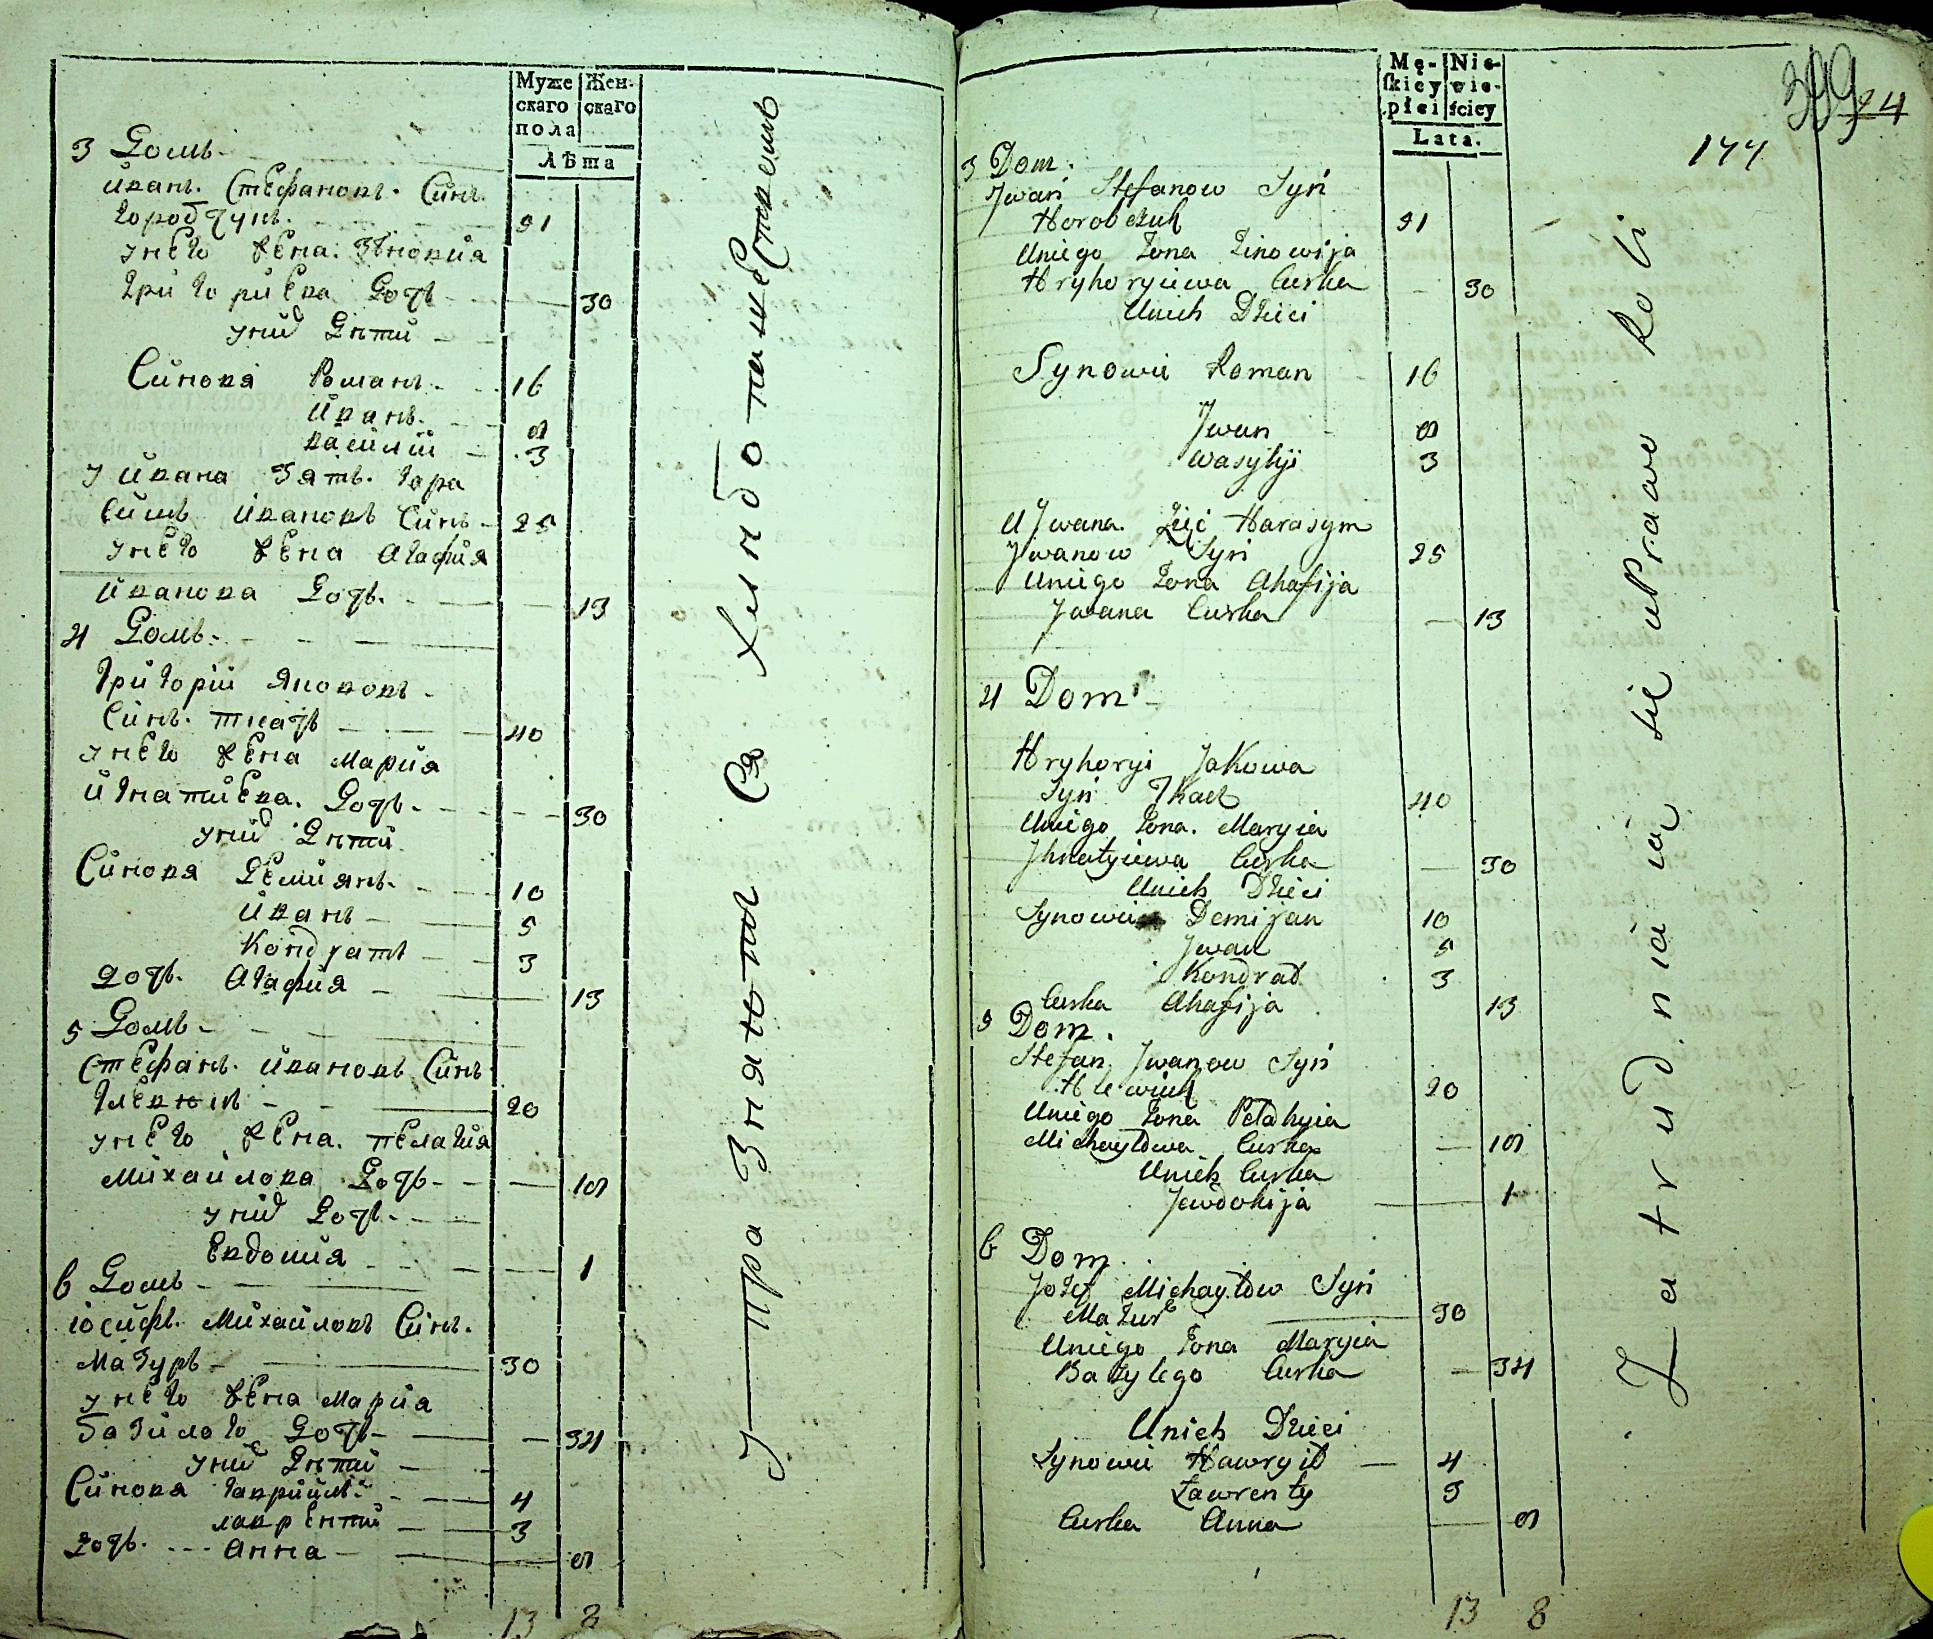 Муже
скаго
пола
Жен-
скаго
Лѣта
3 Домъ
Иванъ Стефановъ Синъ
Городчукъ 31
У него Жена Зѣновия
Григориева Дочь 30
У нихъ Дѣти
Синовя Романъ 16
Иванъ 9
Василий 3
У Ивана Зять Гара
симъ Ивановъ Синъ 25
У него Жена Агафия
Иванова Дочь 13
4 Домъ
Григорий Якововъ
Синъ Ткачъ 40
У него Жена Мария
Игнатиева Дочь 30
У нихъ Дѣти
Синовя Демиянъ 10
Иванъ 5
Кондратъ 3
Дочь Агафия 13
5 Домъ
Стефанъ Ивановъ Синъ
Глевюкъ 20
У него Жена Пелагия
Михайлова Дочь 19
У нихъ Дочь
Евдокия 1
6 Домъ
Иосифъ Михайловъ Синъ
Мазуръ 30
У него Жена Мария
Базилого Дочь 34
У нихъ Дѣти
Синовя Гаврийлъ 4
Лаврентий 3
Дочь Анна 9
13 8
Упразняютця Хлѣбопашеством
Mę-
skiey
płci
Nie-
wie-
ściey
Lata.
399 24
177
3 Dom
Jwan Stefanow Syn
Horobczuk 31
Uniego Żona Zinowija
Hryhoryiewa Curka 30
Unich Dzieci
Synowie Roman 16
Jwan 9
Wasylyi 3
U Jwana Zięć Harasym
Jwanow Syn 25
Uniego Żona Ahafija
Jwana Curka 13
4 Dom
Hryhoryi Jakowa
Syn Tkacz 40
Uniego Żona Maryia
Jhnatyiewa Curka 30
Unich Dzieci
Synowie Demijan 10
Jwan 5
Kondrat 3
Curka Ahafija 13
5 Dom
Stefan Jwanow Syn
Hlewiuk 20
Uniego Żona Pelahyia
Michayłowa Curka 19
Unich Curka
Jewdokija 1
6 Dom
Jozef Michayłow Syn
Mazur 30
Uniego Żona Maryia
Bazylego Curka 34
Unich Dzieci
Synowie Hawryił 4
Ławrenty 3
Curka Anna 9
13 8
Zatrudniaią się uPrawo Roli